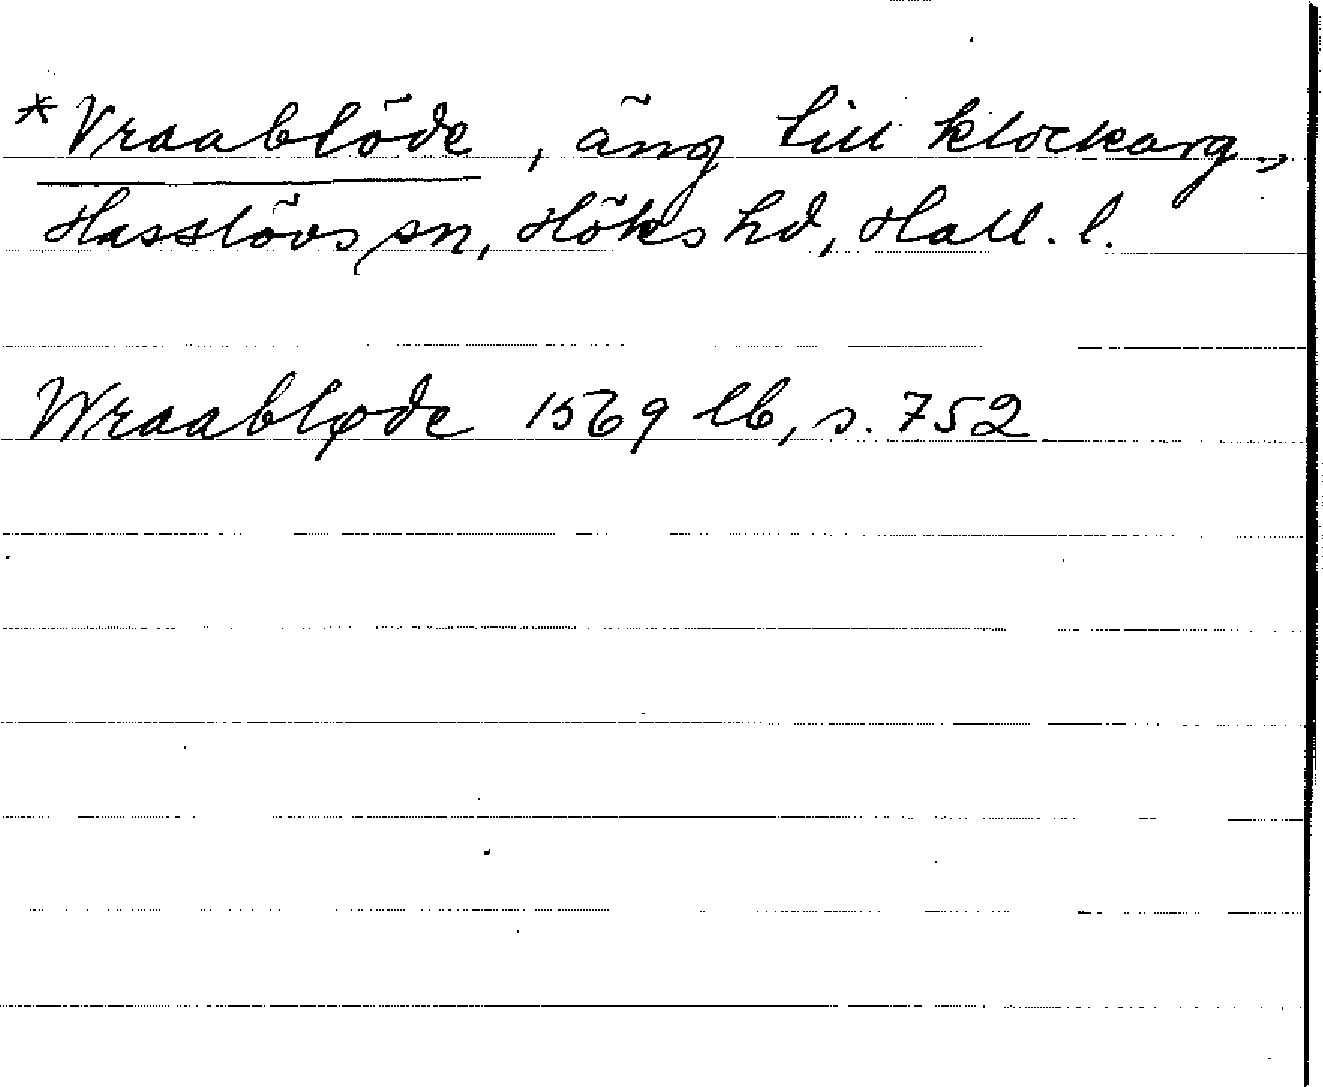 *Vraablöde, äng till klockarg.,
Hasslövs sn, Höks hd, Hall. l.
Wraabløde 1569 lb, s. 752